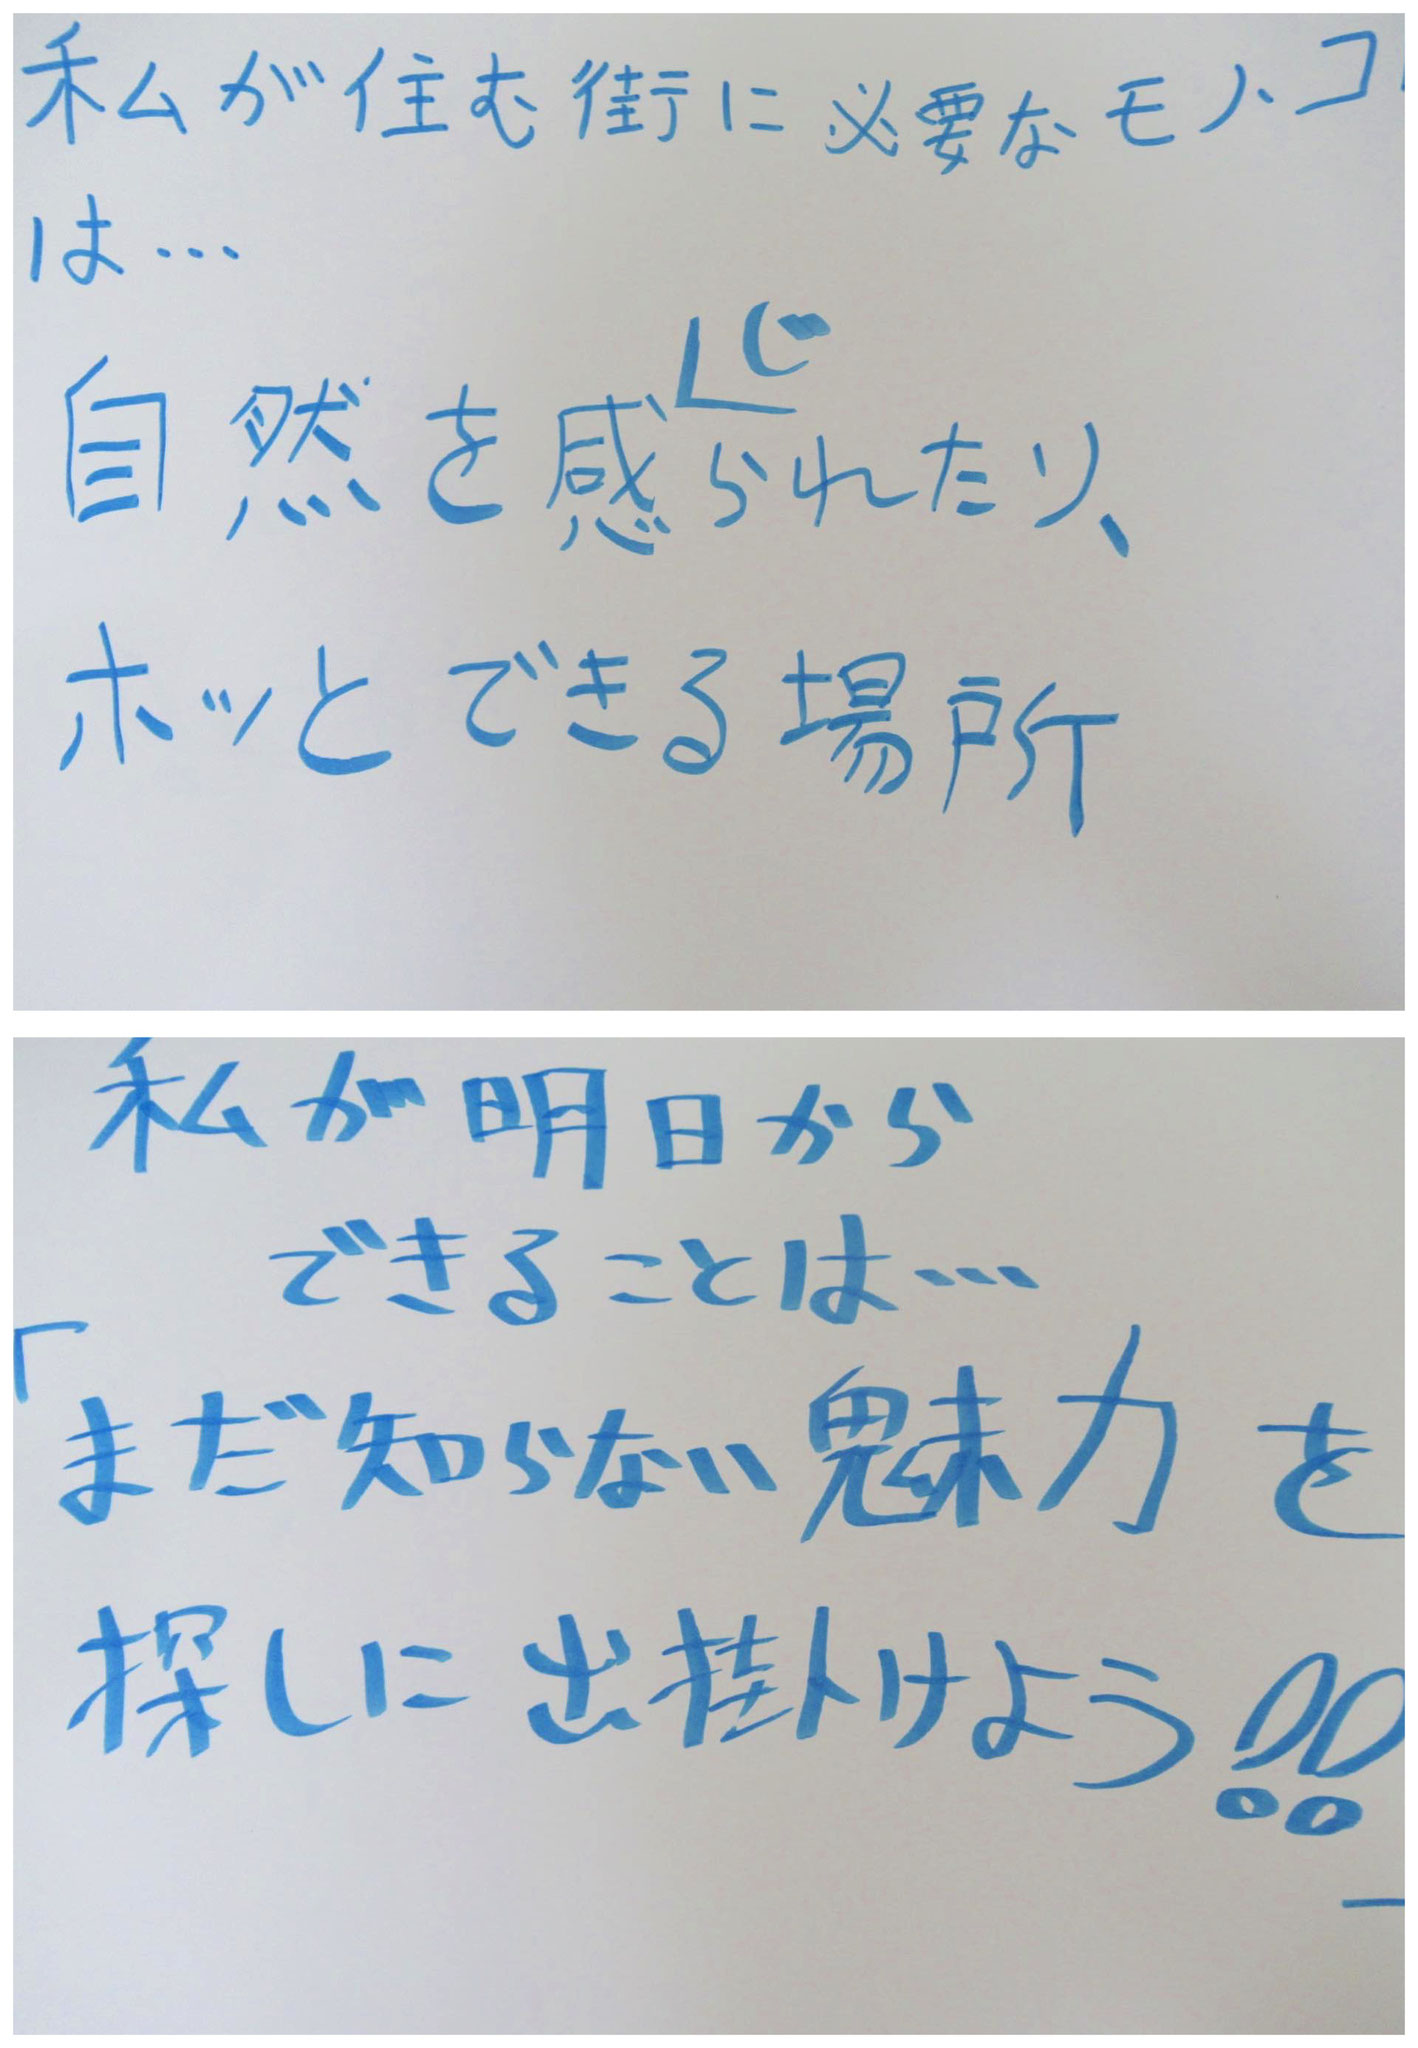 私が住む街に必要なモノ、コ
は…
自然を感じられたり、
ホッとできる場所
私が明日から
できることは…
「まだ知らない魅力を
探しに出掛けよう!!